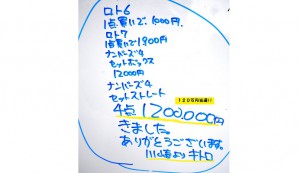 ロト6
1点買いで、1000円
ロト7
1点買いで1900円
ナンバーズ4
セットボックス
12000円
ナンバーズ4
セットストレート
120万円当選!!
4点1200.000円
きました。
ありがとうございます。
川崎よりキトロ